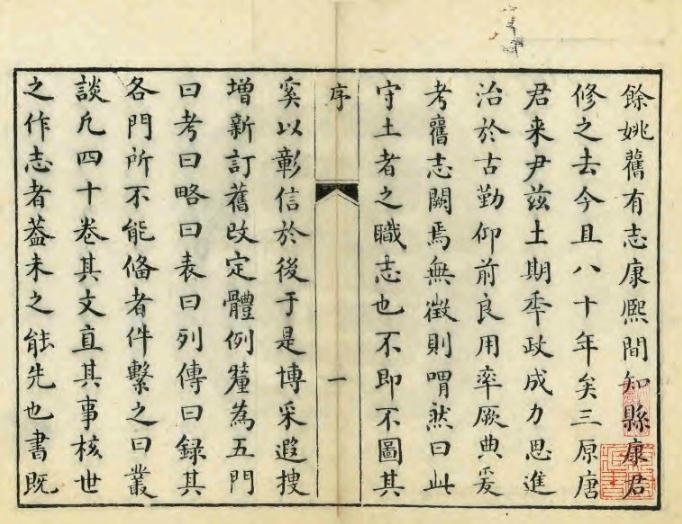 餘姚舊有志康熙間知縣康君
修之去今且八十年矣三原唐
君来尹兹土期秊政成力思進
治於古勤仰前良用率厥典爰
考舊志闕焉無徵則喟然曰此
守土者之職志也不即不圖其
序
一
奚以彰信於後于是博采遐搜
增新訂舊改定體例釐為五門
曰考曰略曰表曰列傳曰録其
各門所不能俻者件繫之曰叢
談凢四十卷其文直其事核世
之作志者葢未之能先也書既